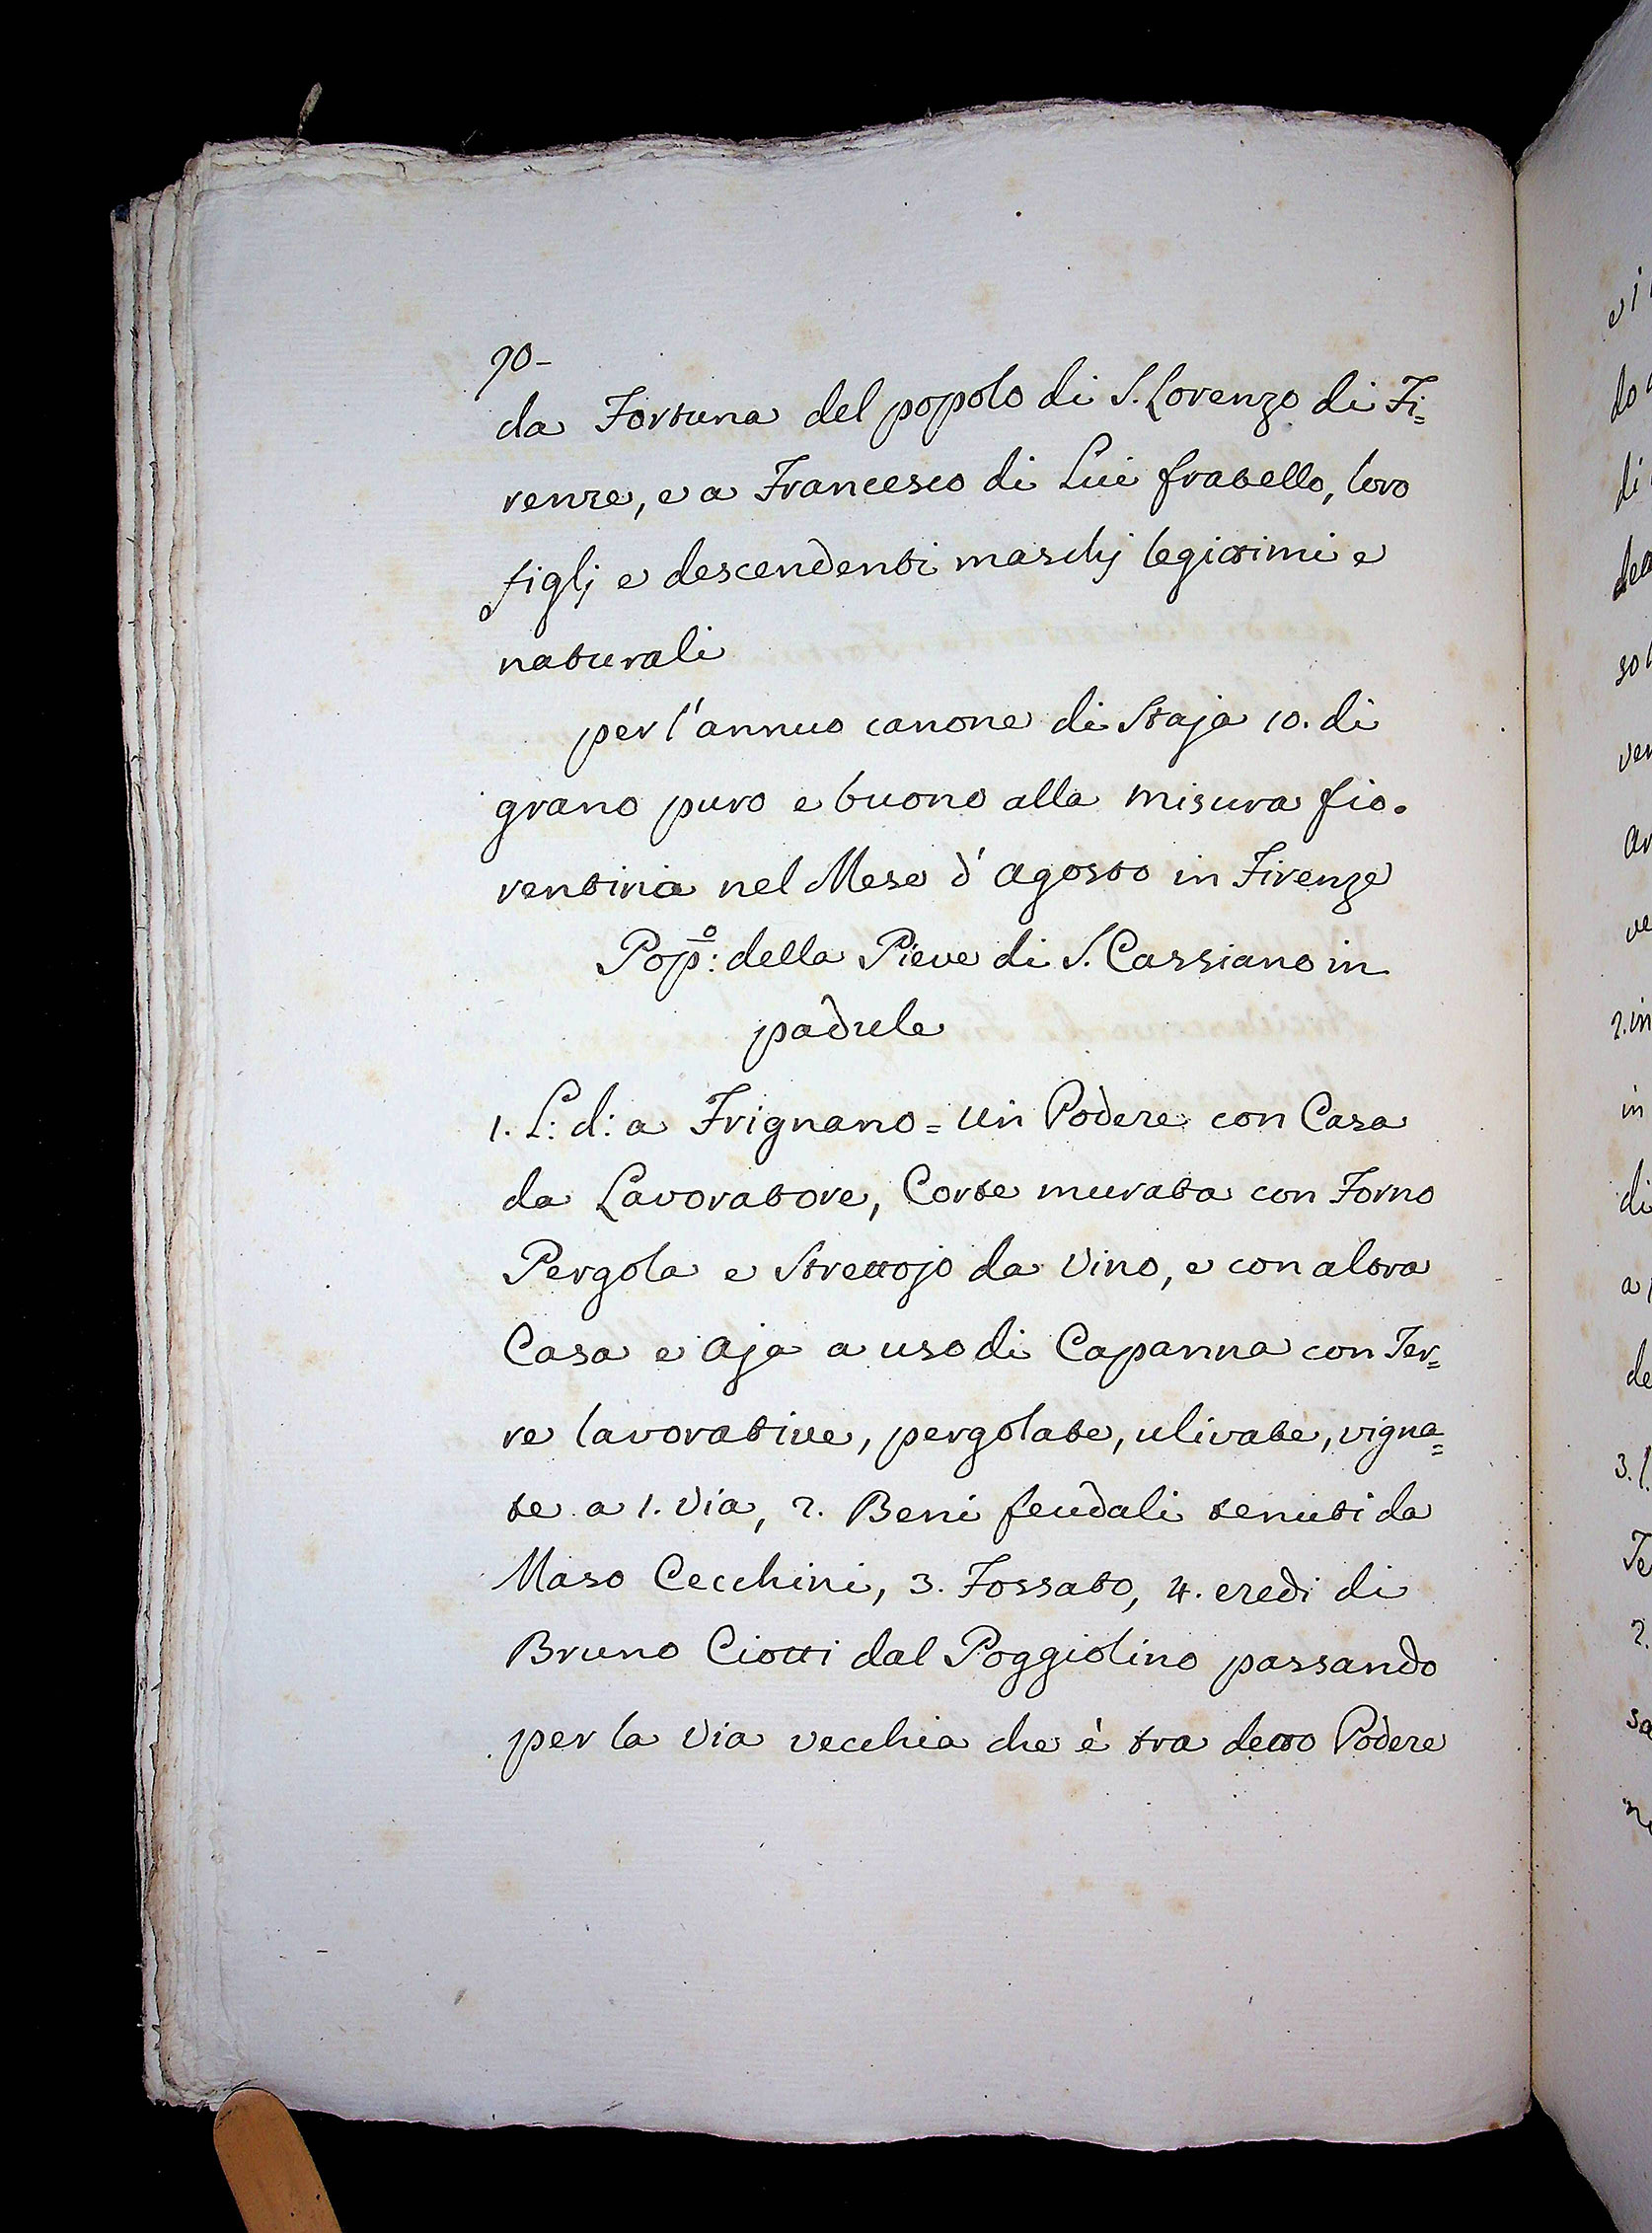 90-
da Fortuna del popolo di S. Lorenzo di Fi=
renze, e a Francesco di Lui fratello, loro
figlj e descendenti maschj legittimi e
naturali
per l'annuo canone di Staja 10. di
grano puro e buono alla misura fio.
rentina nel Mese d'Agosto in Firenze
Pop̅o: della Pieve di S. Cassiano in
padule
1. L: d: a Frignano = Un Podere con Casa
da Lavoratore, Corte murata con Forno
Pergola e Strettojo da Vino, e con altra
Casa e Aja a uso di Capanna con Ter=
re lavorative, pergolate, ulivate, vigna=
te a 1. Via, 2. Beni feudali tenuti da
Maso Cecchini, 3. Fossato, 4. eredi di
Bruno Ciotti dal Poggiolino passando
per la Via vecchia che è tra detto Podere